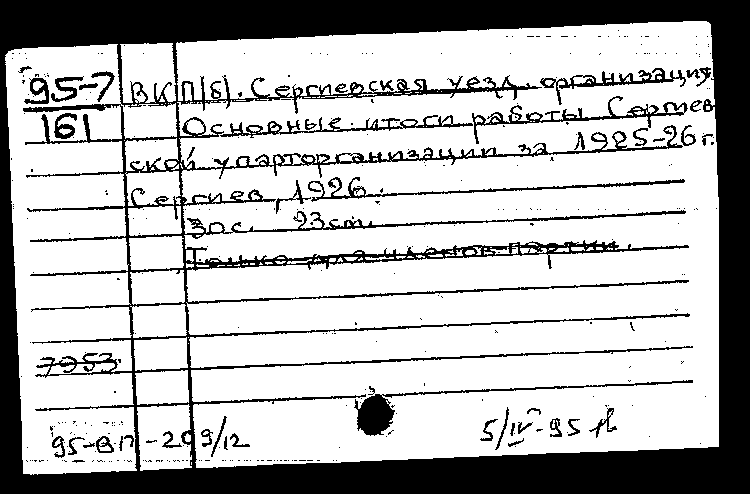 95-7 ВКП(б). Сергиевская уезд. организация.
161 Основные итоги работы Сергиев
ской упарторганизации за 1925-26 г.
Сергиев, 1926.
30 с. 23 cm.
Только для членов партии.
7953
95-ВП-209/12 5/IV-95